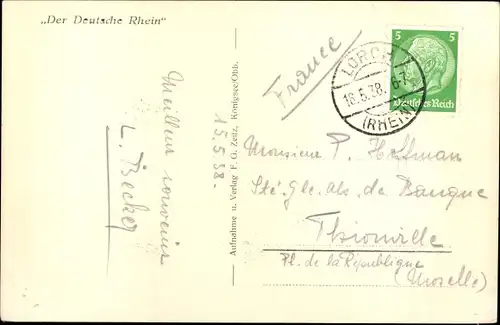 „Der Deutsche Rhein“
Meilleur souvenir
L. Becker
15.5.38.
Aufnahme u. Verlag F. G. Zeitz, Königsee/Thb.
France
LORCH
16.5.38. 6-7
(RHEIN)
5 5
Deutsches Reich
Monsieur P. Hoffman
Sté. Gle. als. de Banque
Thionville
Pl. de la République
(Moselle)